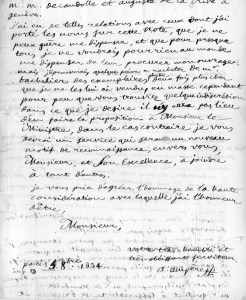 m. m. decandolle et auguste de la Rive à
genève.
j'ai eu de telles relations avec ceux dont j'ai
porté les noms sur cette note, que je ne
peux guère me dispenser, et que pour presque
tous, je ne voudrais pour rien au monde
me dispenser de leur procurer mon ouvrage;
mais
exemplaires plus cher
que je ne les lui ai vendus en masse cependant
pour peu que vous trouviez quelque
dans ce que je desire il n'y ait pas lieu
d'en faire la proposition à Monsieur le
Ministre, dans le cas contraire je vous
devrai un service qui sera un nouveau
motif de reconnaissance, envers vous,
Monsieur, et son Excellence, à joindre
à tant d'autres.
je vous prie d'agréer l'hommage de la haute
considération avec laquelle j'ai l'honneur
d'être
Monsieur,
votre très humble et
très obéissant serviteur
a. ampère
paris
8 1834